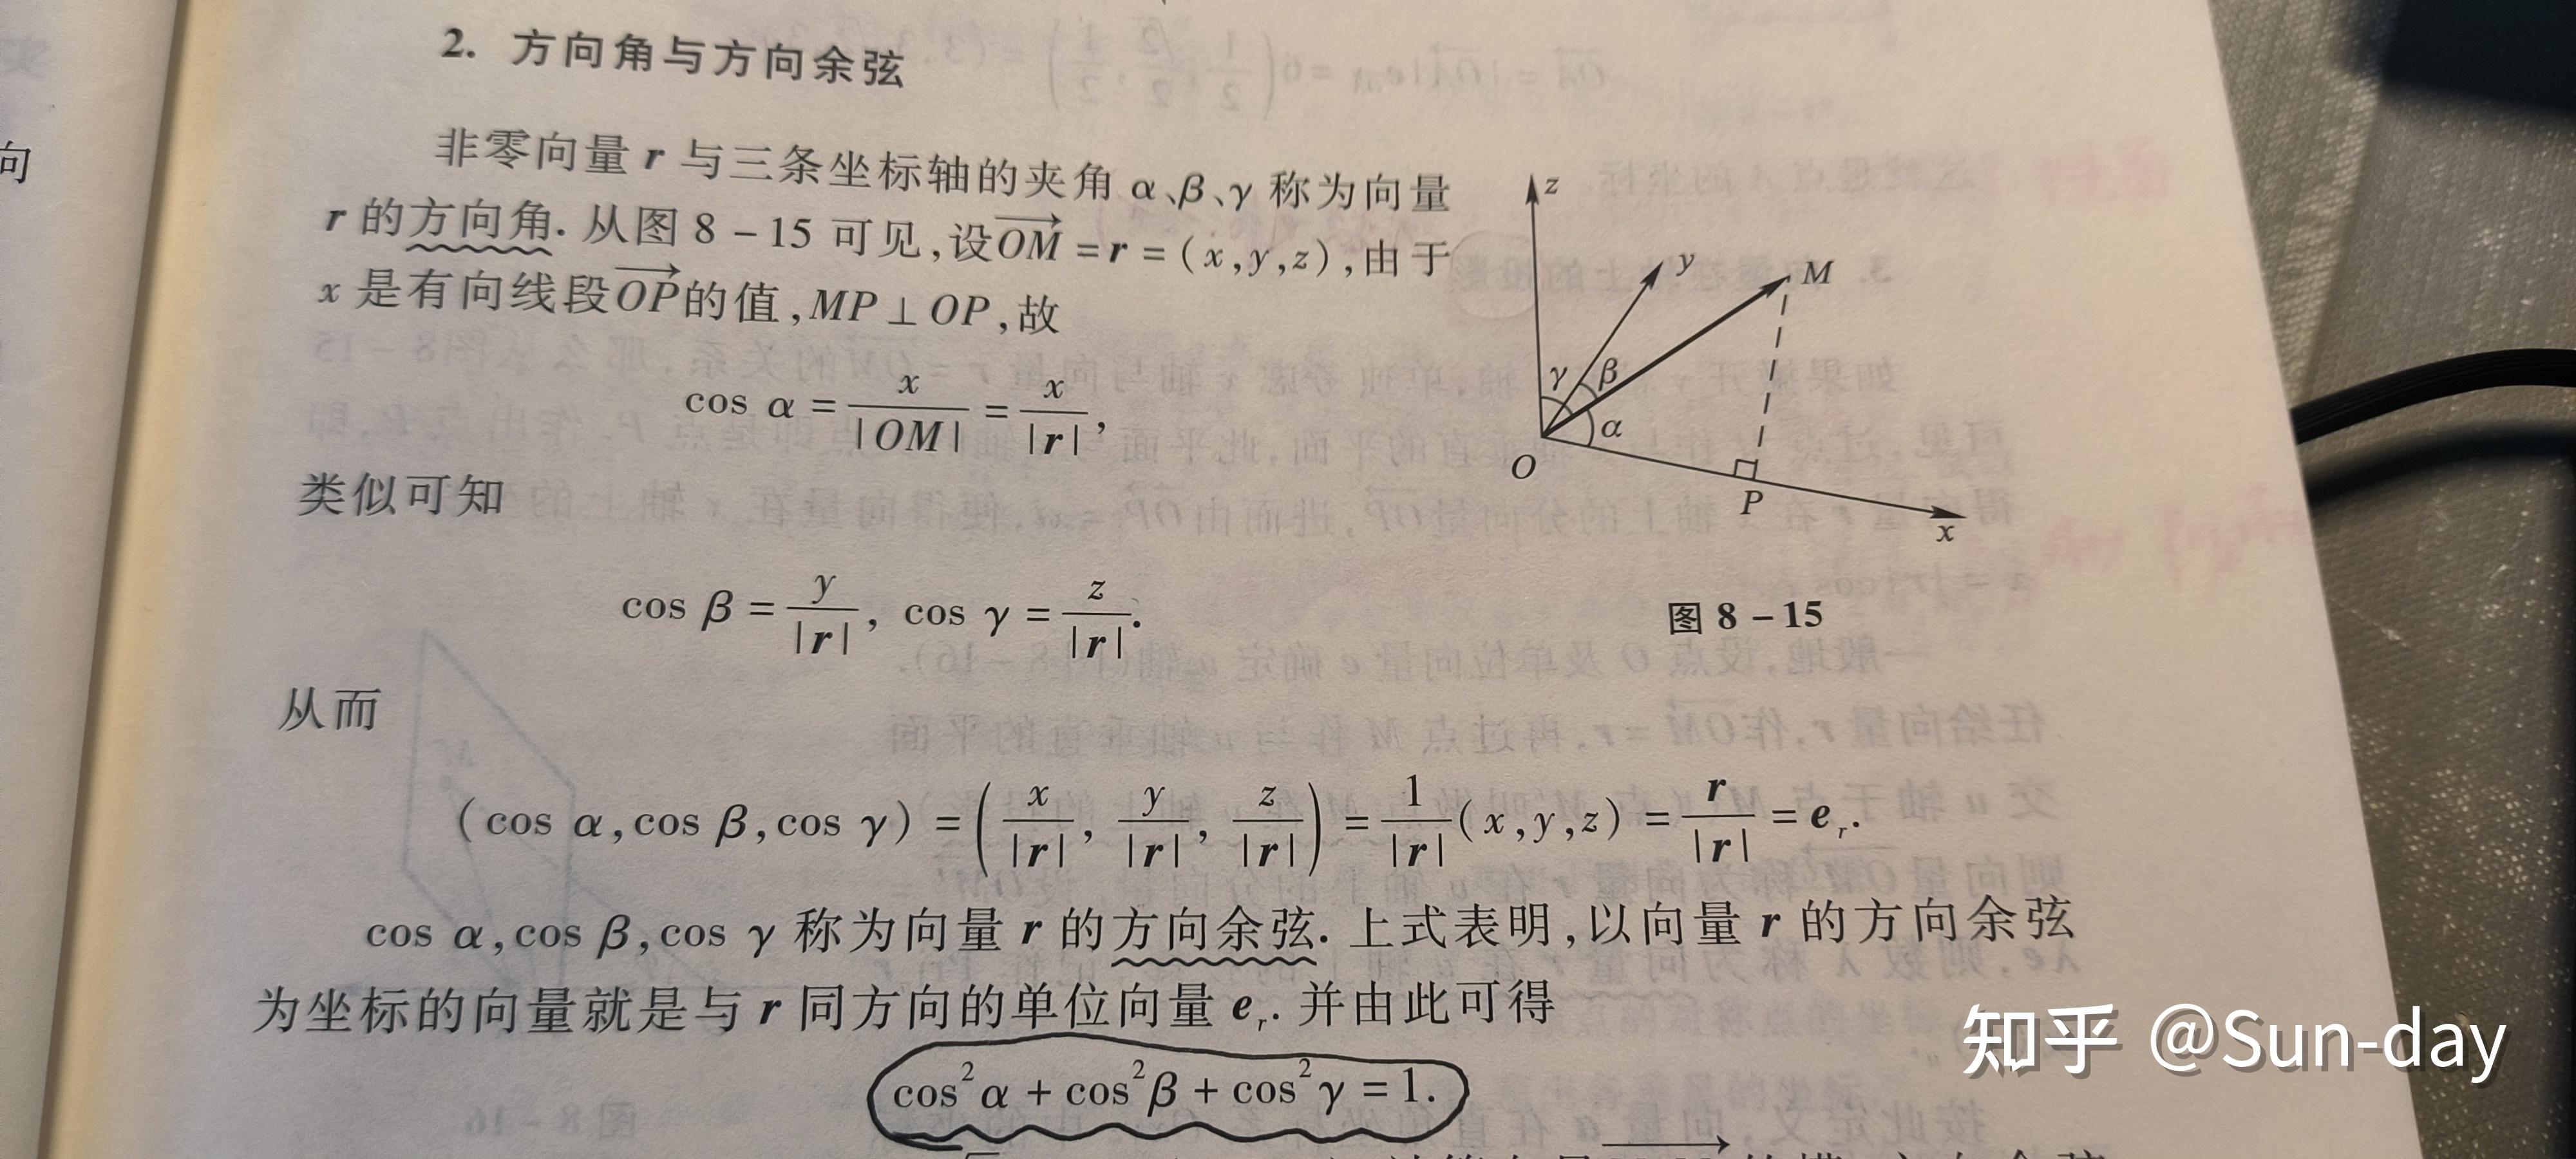 向
2. 方向角与方向余弦
非零向量 r 与三条坐标轴的夹角 α、β、γ 称为向量
r 的方向角. 从图 8-15 可见,设$\overrightarrow{OM}$ = r = (x,y,z),由于
x 是有向线段$\overrightarrow{OP}$的值,MP⊥OP,故
cos α = $\frac{x}{|OM|}$ = $\frac{x}{|r|}$,
类似可知
cos β = $\frac{y}{|r|}$, cos γ = $\frac{z}{|r|}$.
z
y
M
γ
β
α
O
P
x
图 8-15
从而
(cos α,cos β,cos γ) = ($\frac{x}{|r|}$, $\frac{y}{|r|}$, $\frac{z}{|r|}$) = $\frac{1}{|r|}$(x,y,z) = $\frac{r}{|r|}$ = e$_r$.
cos α,cos β,cos γ 称为向量 r 的方向余弦. 上式表明,以向量 r 的方向余弦
为坐标的向量就是与 r 同方向的单位向量 e$_r$. 并由此可得
cos²α + cos²β + cos²γ = 1.
知乎 @Sun-day